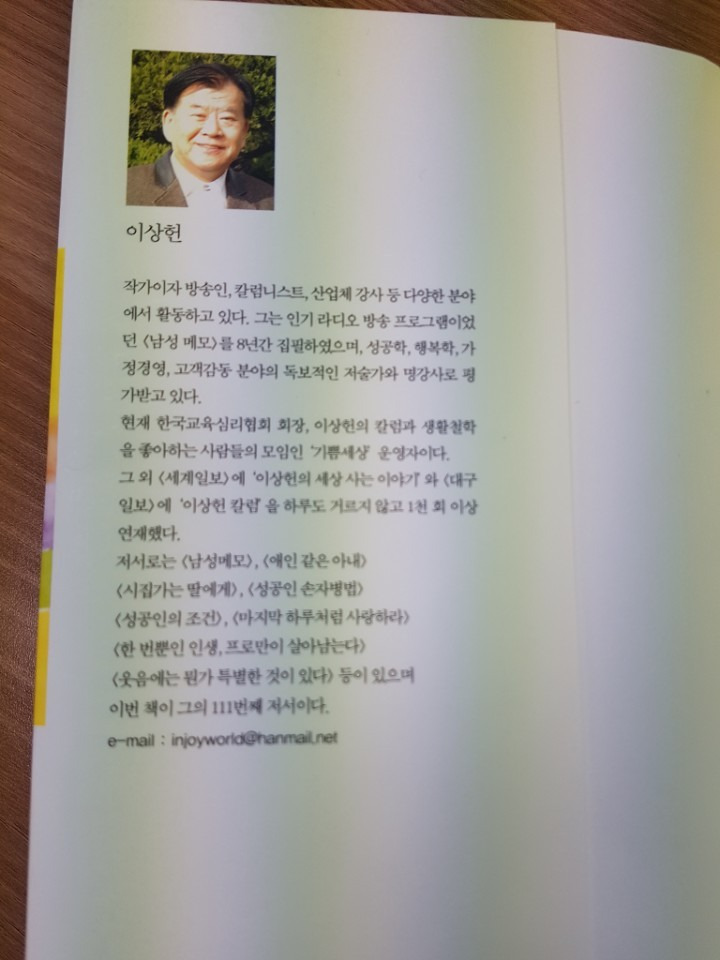 이상헌
작가이자 방송인, 칼럼니스트, 산업체 강사 등 다양한 분야
에서 활동하고 있다. 그는 인기 라디오 방송 프로그램이었
던 〈남성 메모〉를 8년간 집필하였으며, 성공학, 행복학, 가
정경영, 고객감동 분야의 독보적인 저술가와 명강사로 평
가받고 있다.
현재 한국교육심리협회 회장, 이상헌의 칼럼과 생활철학
을 좋아하는 사람들의 모임인 '기쁨세상' 운영자이다.
그 외 〈세계일보〉에 '이상헌의 세상 사는 이야기'와 〈대구
일보〉에 '이상헌 칼럼'을 하루도 거르지 않고 1천 회 이상
연재했다.
저서로는 〈남성메모〉, 〈애인 같은 아내〉
〈시집가는 딸에게〉, 〈성공인 손자병법〉
〈성공인의 조건〉, 〈마지막 하루처럼 사랑하라〉
〈한 번뿐인 인생, 프로만이 살아남는다〉
〈웃음에는 뭔가 특별한 것이 있다〉 등이 있으며
이번 책이 그의 111번째 저서이다.
e-mail : injoyworld@hanmail.net